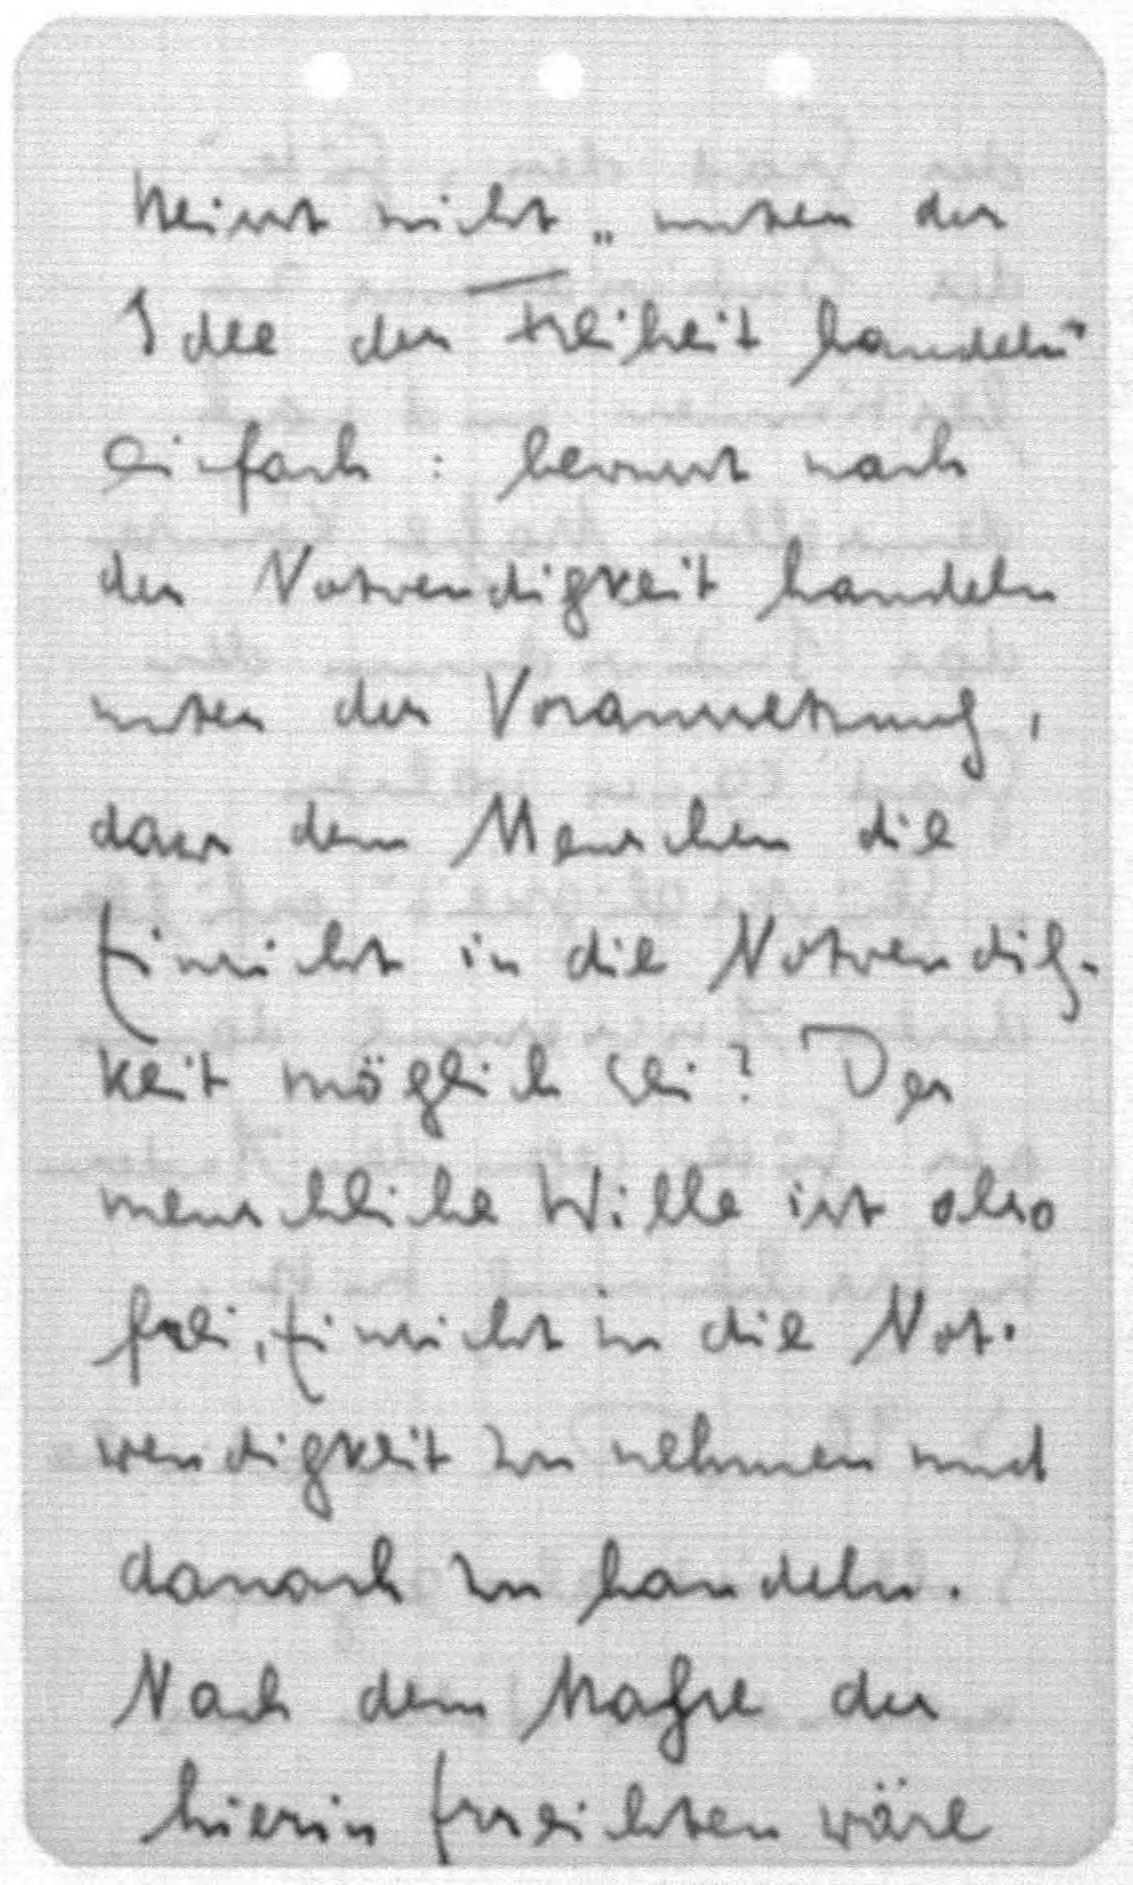 Heisst nicht „unter der
Idee der Freiheit handeln"
einfach: bewusst nach
der Notwendigkeit handeln
unter der Voraussetzung,
dass dem Menschen die
Einsicht in die Notwendig-
keit möglich sei? Der
menschliche Wille ist also
frei, Einsicht in die Not-
wendigkeit zu nehmen und
danach zu handeln.
Nach dem Maße des
hierin Erreichten wäre